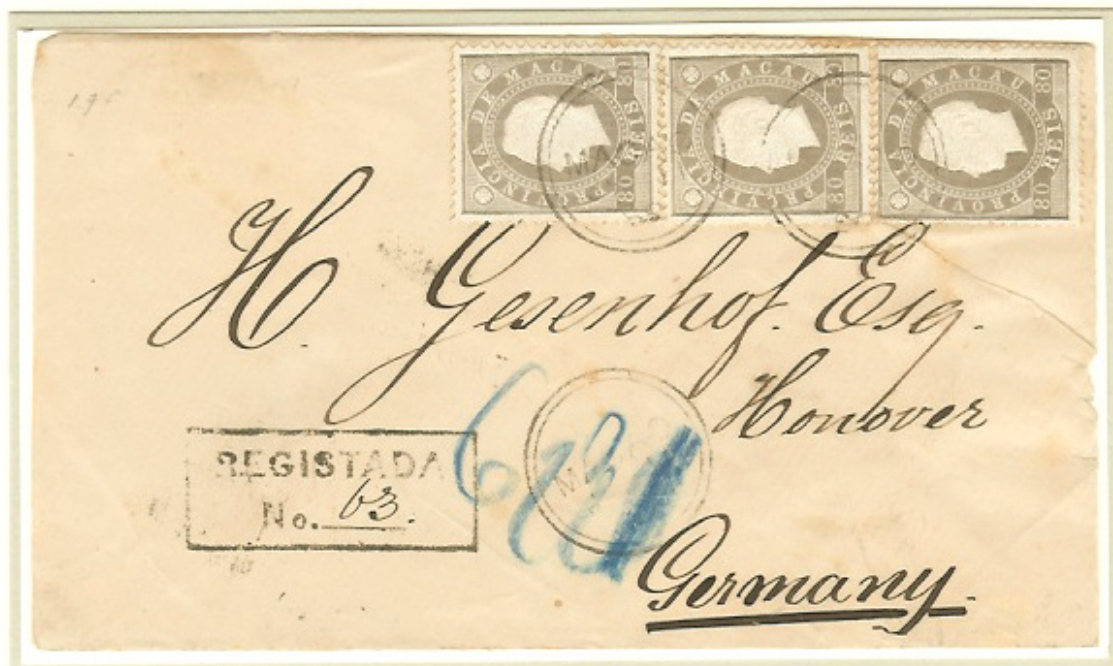 PROVINCIA DE MACAU 80 REIS 80
PROVINCIA DE MACAU 80 REIS 80
PROVINCIA DE MACAU 80 REIS 80
H. Gesenhof. Esq.
Honover
REGISTADA
No. 63.
Germany.